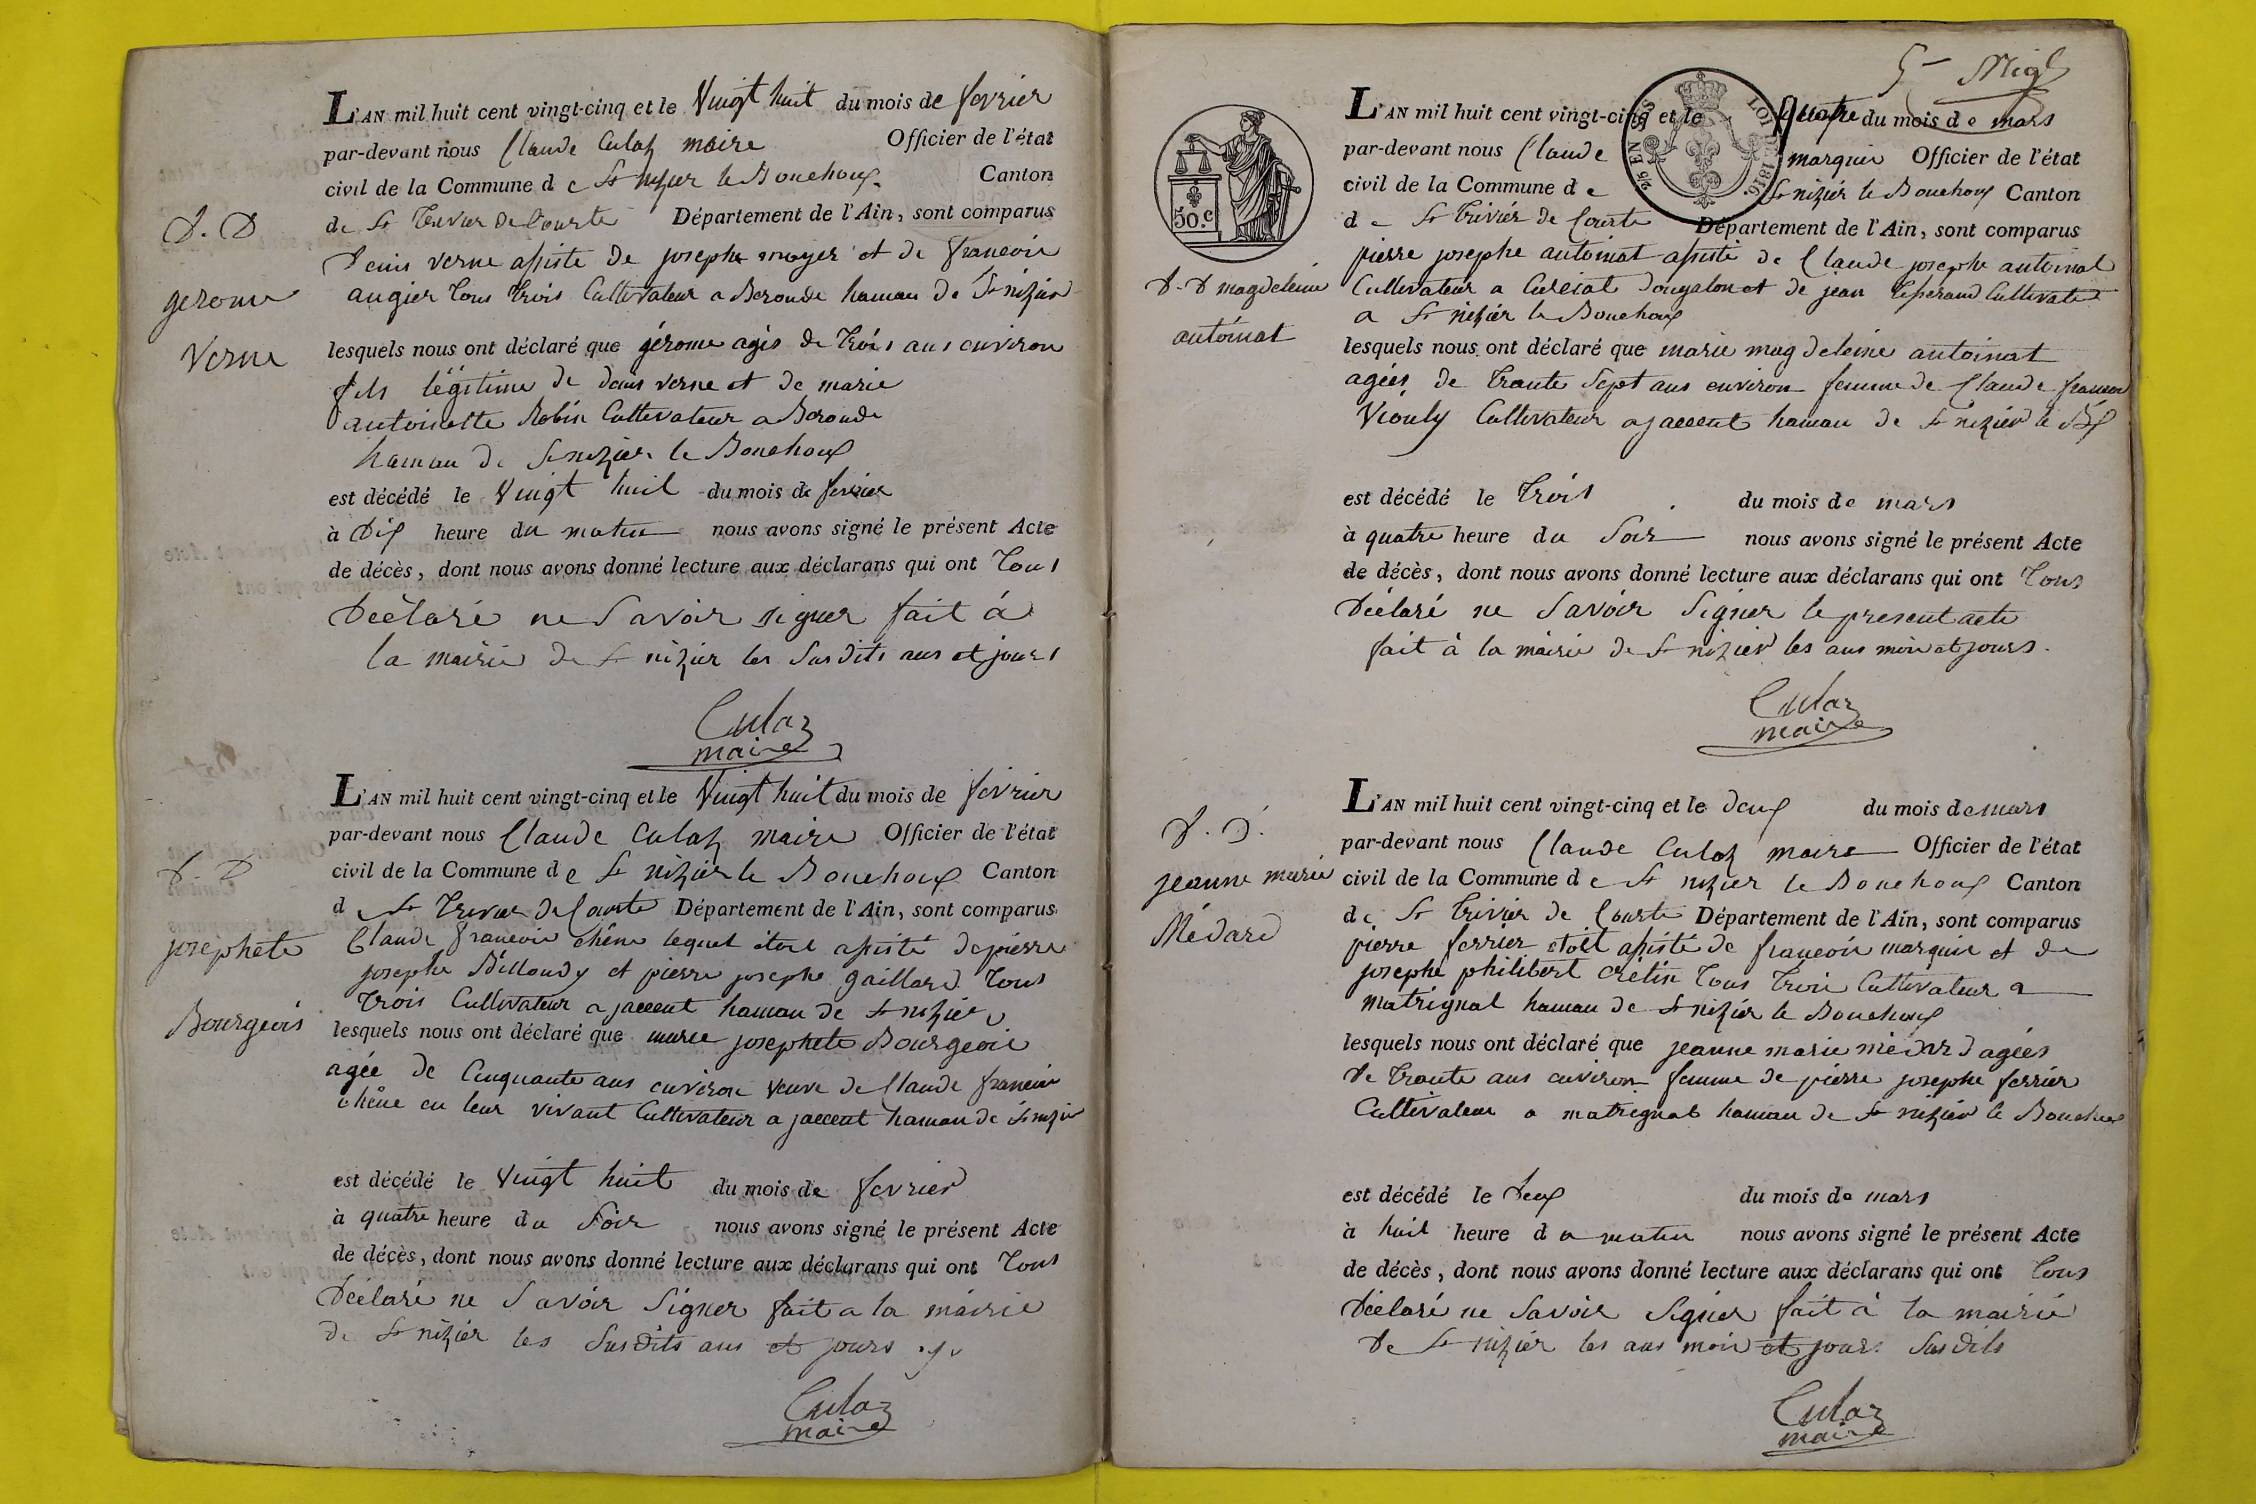 L'AN mil huit cent vingt-cinq et le Vingt huit du mois de fevrier
par-devant nous Claude Culaz maire Officier de l'état
civil de la Commune de St nizier le Bouchoux Canton
de St Trivier de Courte Département de l'Ain, sont comparus
D. D
gerome
Verne
Denis verne assiste de josephe moyer et de francois
augier Tous trois Cultivateur a Beronde hamau de St nizier
lesquels nous ont déclaré que gérome agés de Trois ans environ
fils légitime de denis verne et de marie
antoinette Robin Cultivateur a Beronde
hamau de St nizier le Bouchoux
est décédé le Vingt huit du mois de fevrier
à Dix heure du matin nous avons signé le présent Acte
de décès, dont nous avons donné lecture aux déclarans qui ont Tous
Déclaré ne Savoir signer fait à
la mairie de St nizier les Susdits ans et jours
Culaz
maire
L'AN mil huit cent vingt-cinq et le Vingt huit du mois de fevrier
par-devant nous Claude Culaz maire Officier de l'état
civil de la Commune de St nizier le Bouchoux Canton
d St Trivier de Courte Département de l'Ain, sont comparus
D. D
josephete
Bourgeois
Claude francois chêne lequel étoit assisté de pierre
josephe Billoudy et pierre josephe gaillard Tous
Trois Cultivateur a jaccent hamau de St nizier
lesquels nous ont déclaré que marie josephete Bourgeois
agée de Cinquante ans environ veuve de Claude francois
chêne en leur vivant Cultivateur a jaccent hamau de St nizier
est décédé le Vingt huit du mois de fevrier
à quatre heure du Soir nous avons signé le présent Acte
de décès, dont nous avons donné lecture aux déclarans qui ont Tous
Déclaré ne Savoir Signer fait a la mairie
de St nizier les Susdits ans et jours
Culaz
maire
L'AN mil huit cent vingt-cinq et le Quatre du mois de mars
par-devant nous Claude marquis Officier de l'état
civil de la Commune de St nizier le Bouchoux Canton
de St Trivier de Courte Département de l'Ain, sont comparus
50.c
2/5 EN SUS
LOI DE 1816
D. D magdeleine
antoinat
pierre josephe antoinat assisté de Claude josephe antoinat
Cultivateur a Curciat Dongalon et de jean Cultivateur
a St nizier le Bouchoux
lesquels nous ont déclaré que marie magdeleine antoinat
agées de Trante Sept ans environ femme de Claude francois
Viouly Cultivateur a jaccent hamau de St nizier le Bx
est décédé le Trois du mois de mars
à quatre heure du Soir nous avons signé le présent Acte
de décès, dont nous avons donné lecture aux déclarans qui ont Tous
Déclaré ne Savoir Signer le present acte
fait à la mairie de St nizier les ans mois et jours.
Culaz
maire
L'AN mil huit cent vingt-cinq et le deux du mois de mars
par-devant nous Claude Culaz maire Officier de l'état
civil de la Commune de St nizier le Bouchoux Canton
de St Trivier de Courte Département de l'Ain, sont comparus
D. D.
jeanne marie
Médard
pierre ferrier étoit assisté de francois marquis et de
josephe philibert crétin Tous Trois Cultivateur a
matrignat hamau de St nizier le Bouchoux
lesquels nous ont déclaré que jeanne marie médard agées
de Trante ans environ femme de pierre josephe ferrier
Cultivateur a matrignat hamau de St nizier le Bouchoux
est décédé le Deux du mois de mars
à huit heure du matin nous avons signé le présent Acte
de décès, dont nous avons donné lecture aux déclarans qui ont Tous
Déclaré ne Savoir Signer fait à la mairie
de St nizier les ans mois et jours Susdits
Culaz
maire